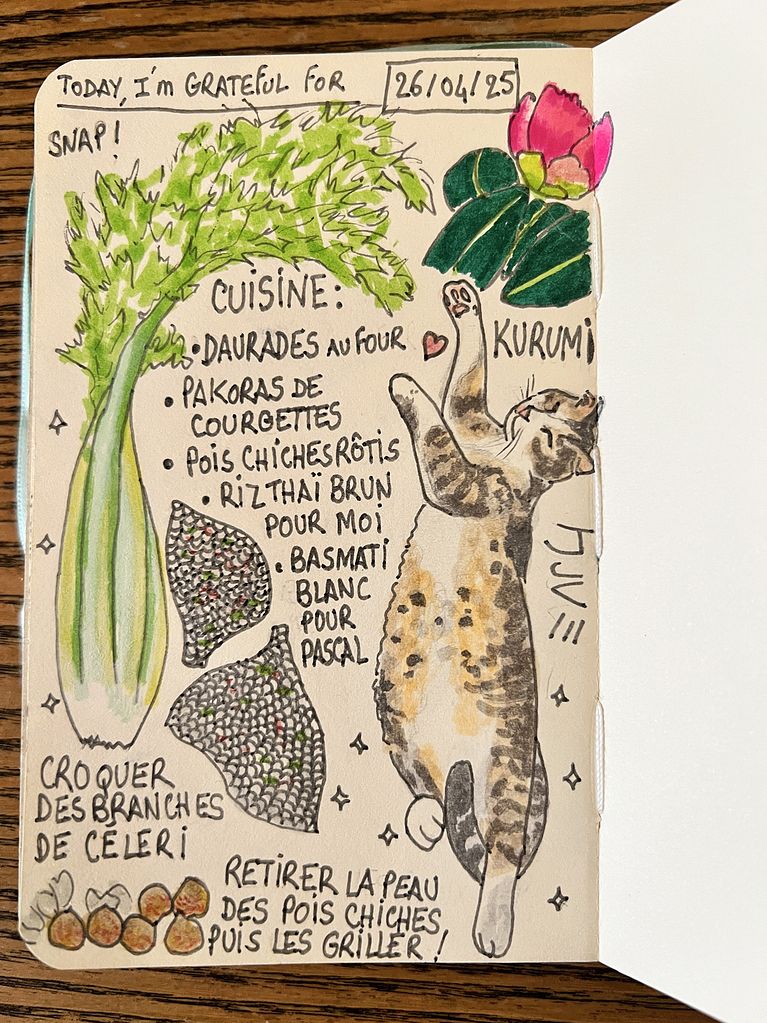 TODAY, I'm GRATEFUL FOR
26/04/25
SNAP!
CUISINE:
• DAURADES AU FOUR
• PAKORAS DE
COURGETTES
• POIS CHICHES RÔTIS
• RIZ THAÏ BRUN
POUR MOI
• BASMATI
BLANC
POUR
PASCAL
KURUMI
クルミ
CROQUER
DES BRANCHES
DE CELERI
RETIRER LA PEAU
DES POIS CHICHES
PUIS LES GRILLER!